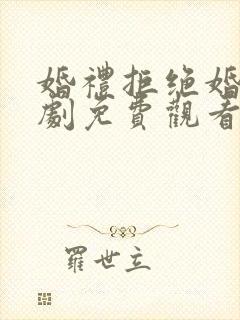 婚禮拒绝婚
劇免費觀看
羅世立